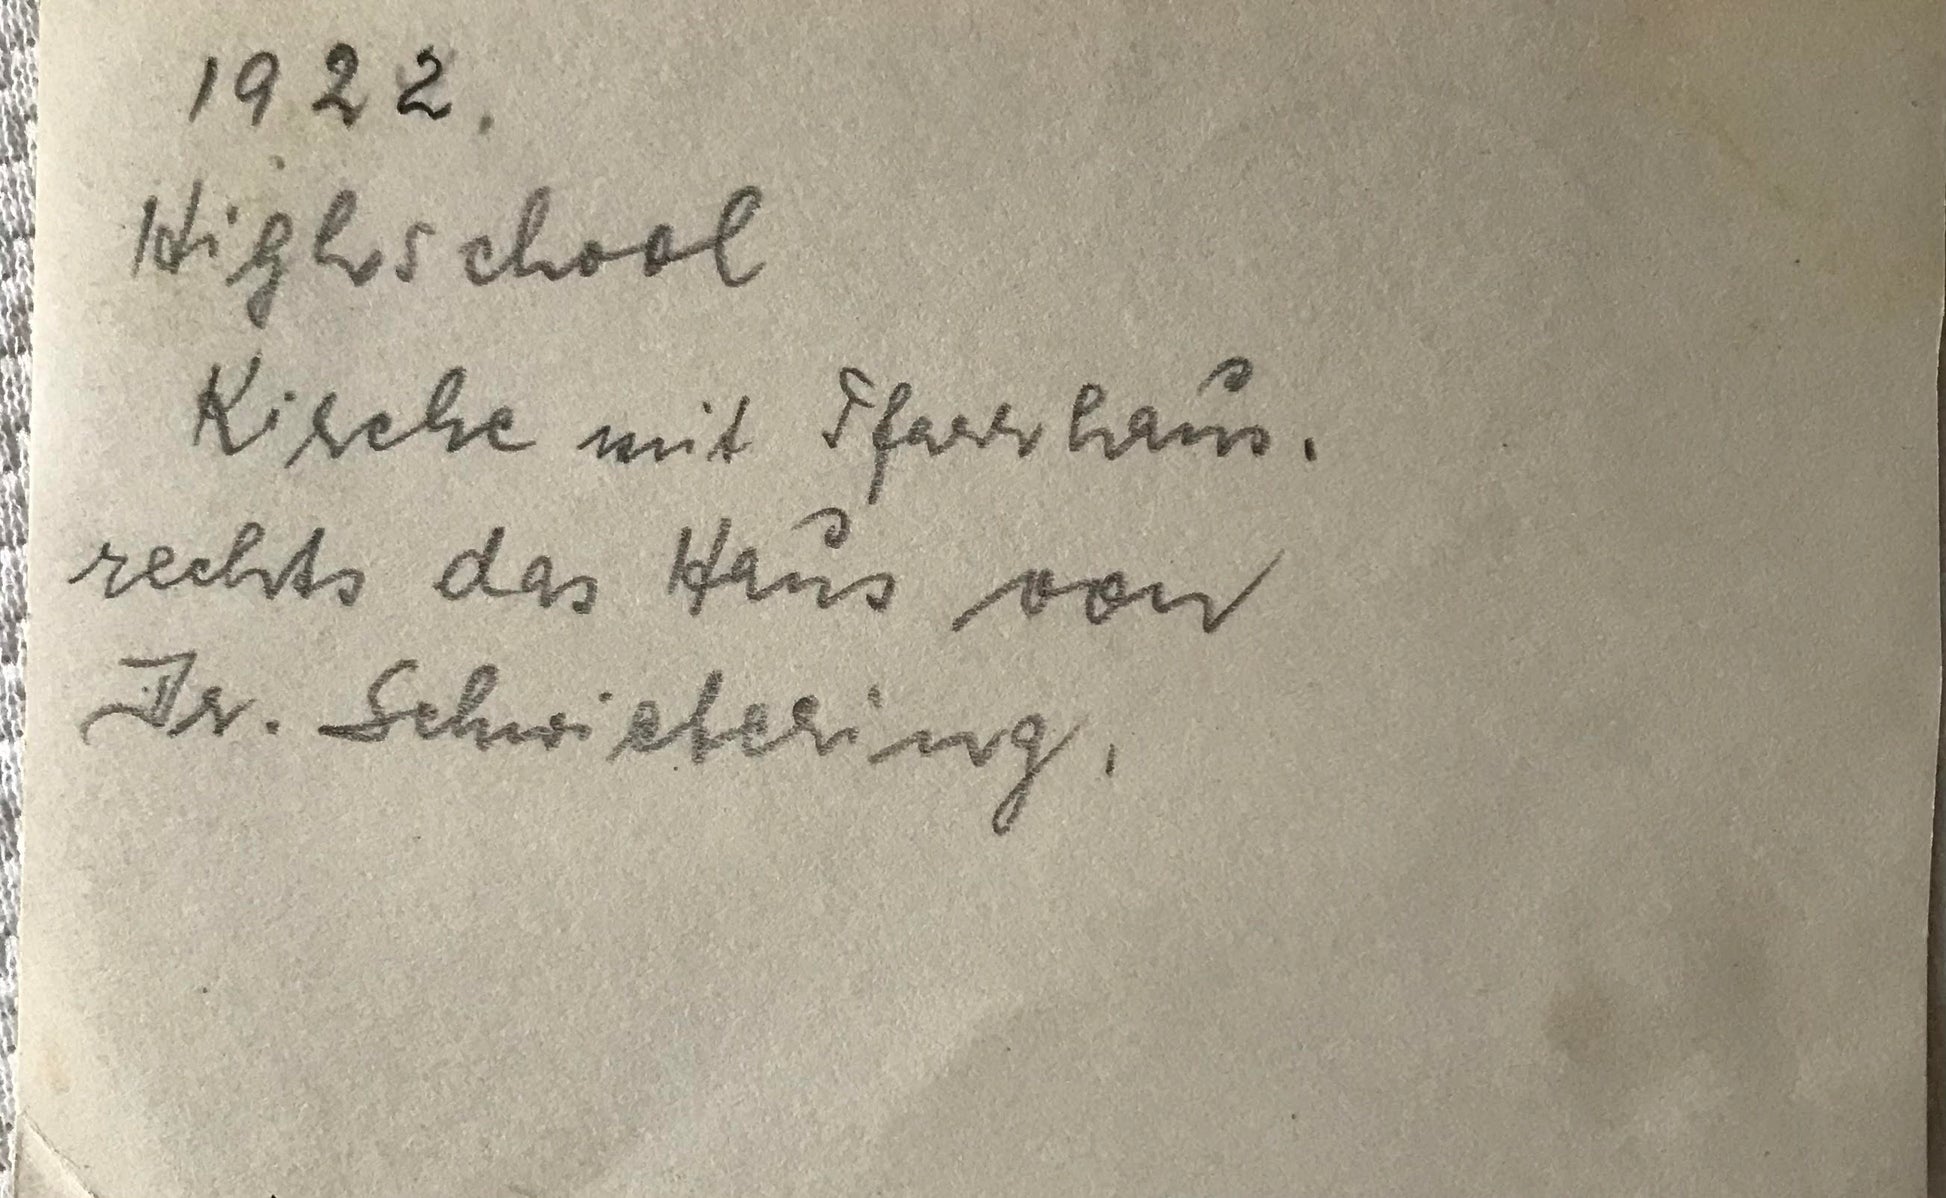 1922.
Highschool
Kirche mit Pfarrhaus.
rechts das Haus von
Dr. Schwietering.